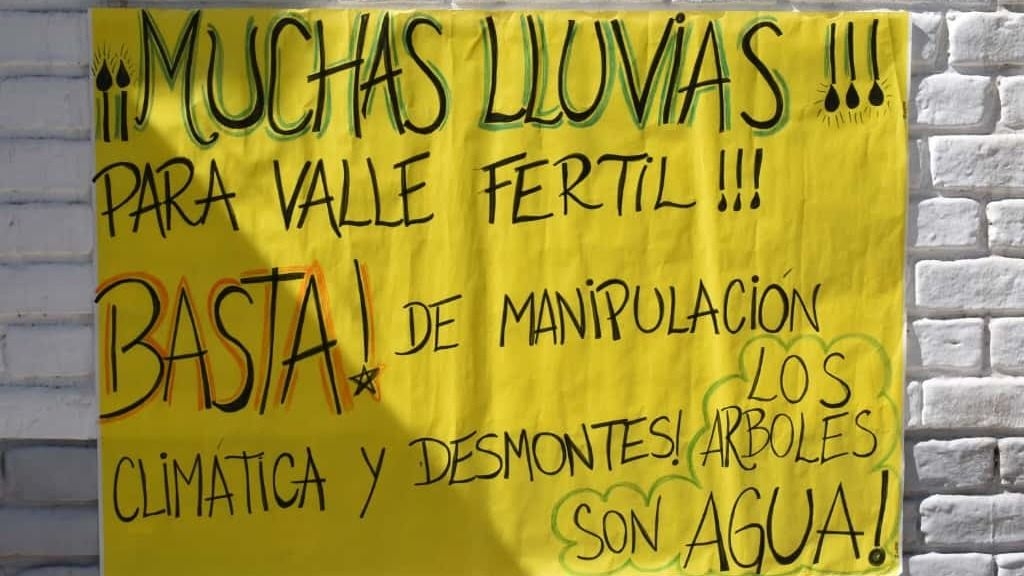 ¡¡MUCHAS LLUVIAS!!!
PARA VALLE FERTIL!!!
BASTA! DE MANIPULACIÓN
CLIMÁTICA Y DESMONTES!
LOS
ARBOLES
SON AGUA!